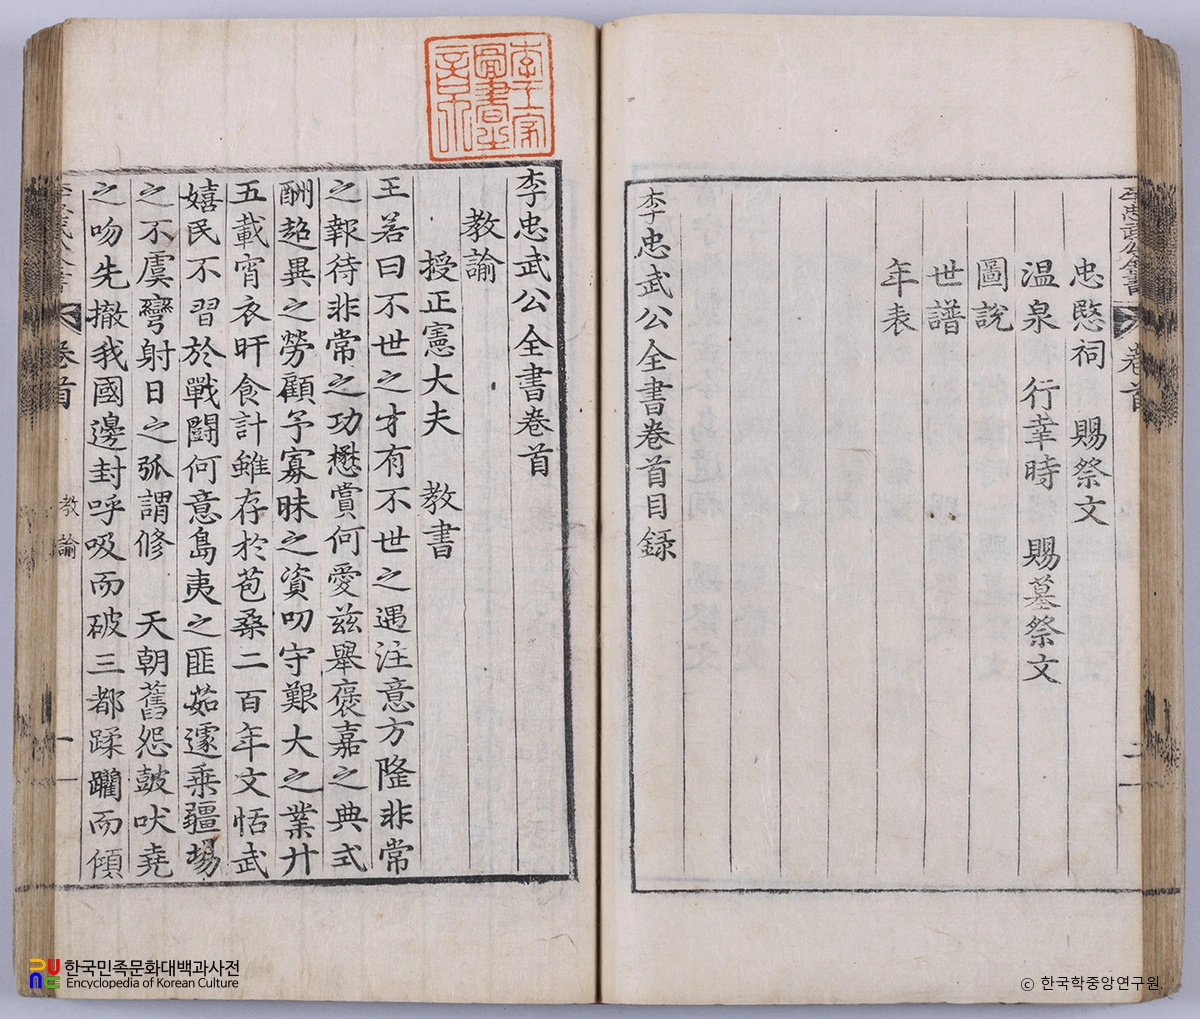 忠愍祠 賜祭文
溫泉 行幸時 賜墓祭文
圖說
世譜
年表
李忠武公全書卷首目錄
李忠武公全書 卷首 二
李王家圖書之章
李忠武公全書卷首
教諭
授正憲大夫 教書
王若曰不世之才有不世之遇注意方隆非常
之報待非常之功懋賞何愛玆舉褒嘉之典式
酬超異之勞顧予寡昧之資叨守艱大之業廾
五載宵衣旰食計雖存於苞桑二百年文恬武
嬉民不習於戰鬪何意島夷之匪茹遽乘疆場
之不虞彎射日之弧謂修 天朝舊怨皷吠堯
之吻先撤我國邊封呼吸而破三都蹂躪而傾
卷首 教諭 一
한국민족문화대백과사전
Encyclopedia of Korean Culture
ⓒ 한국학중앙연구원